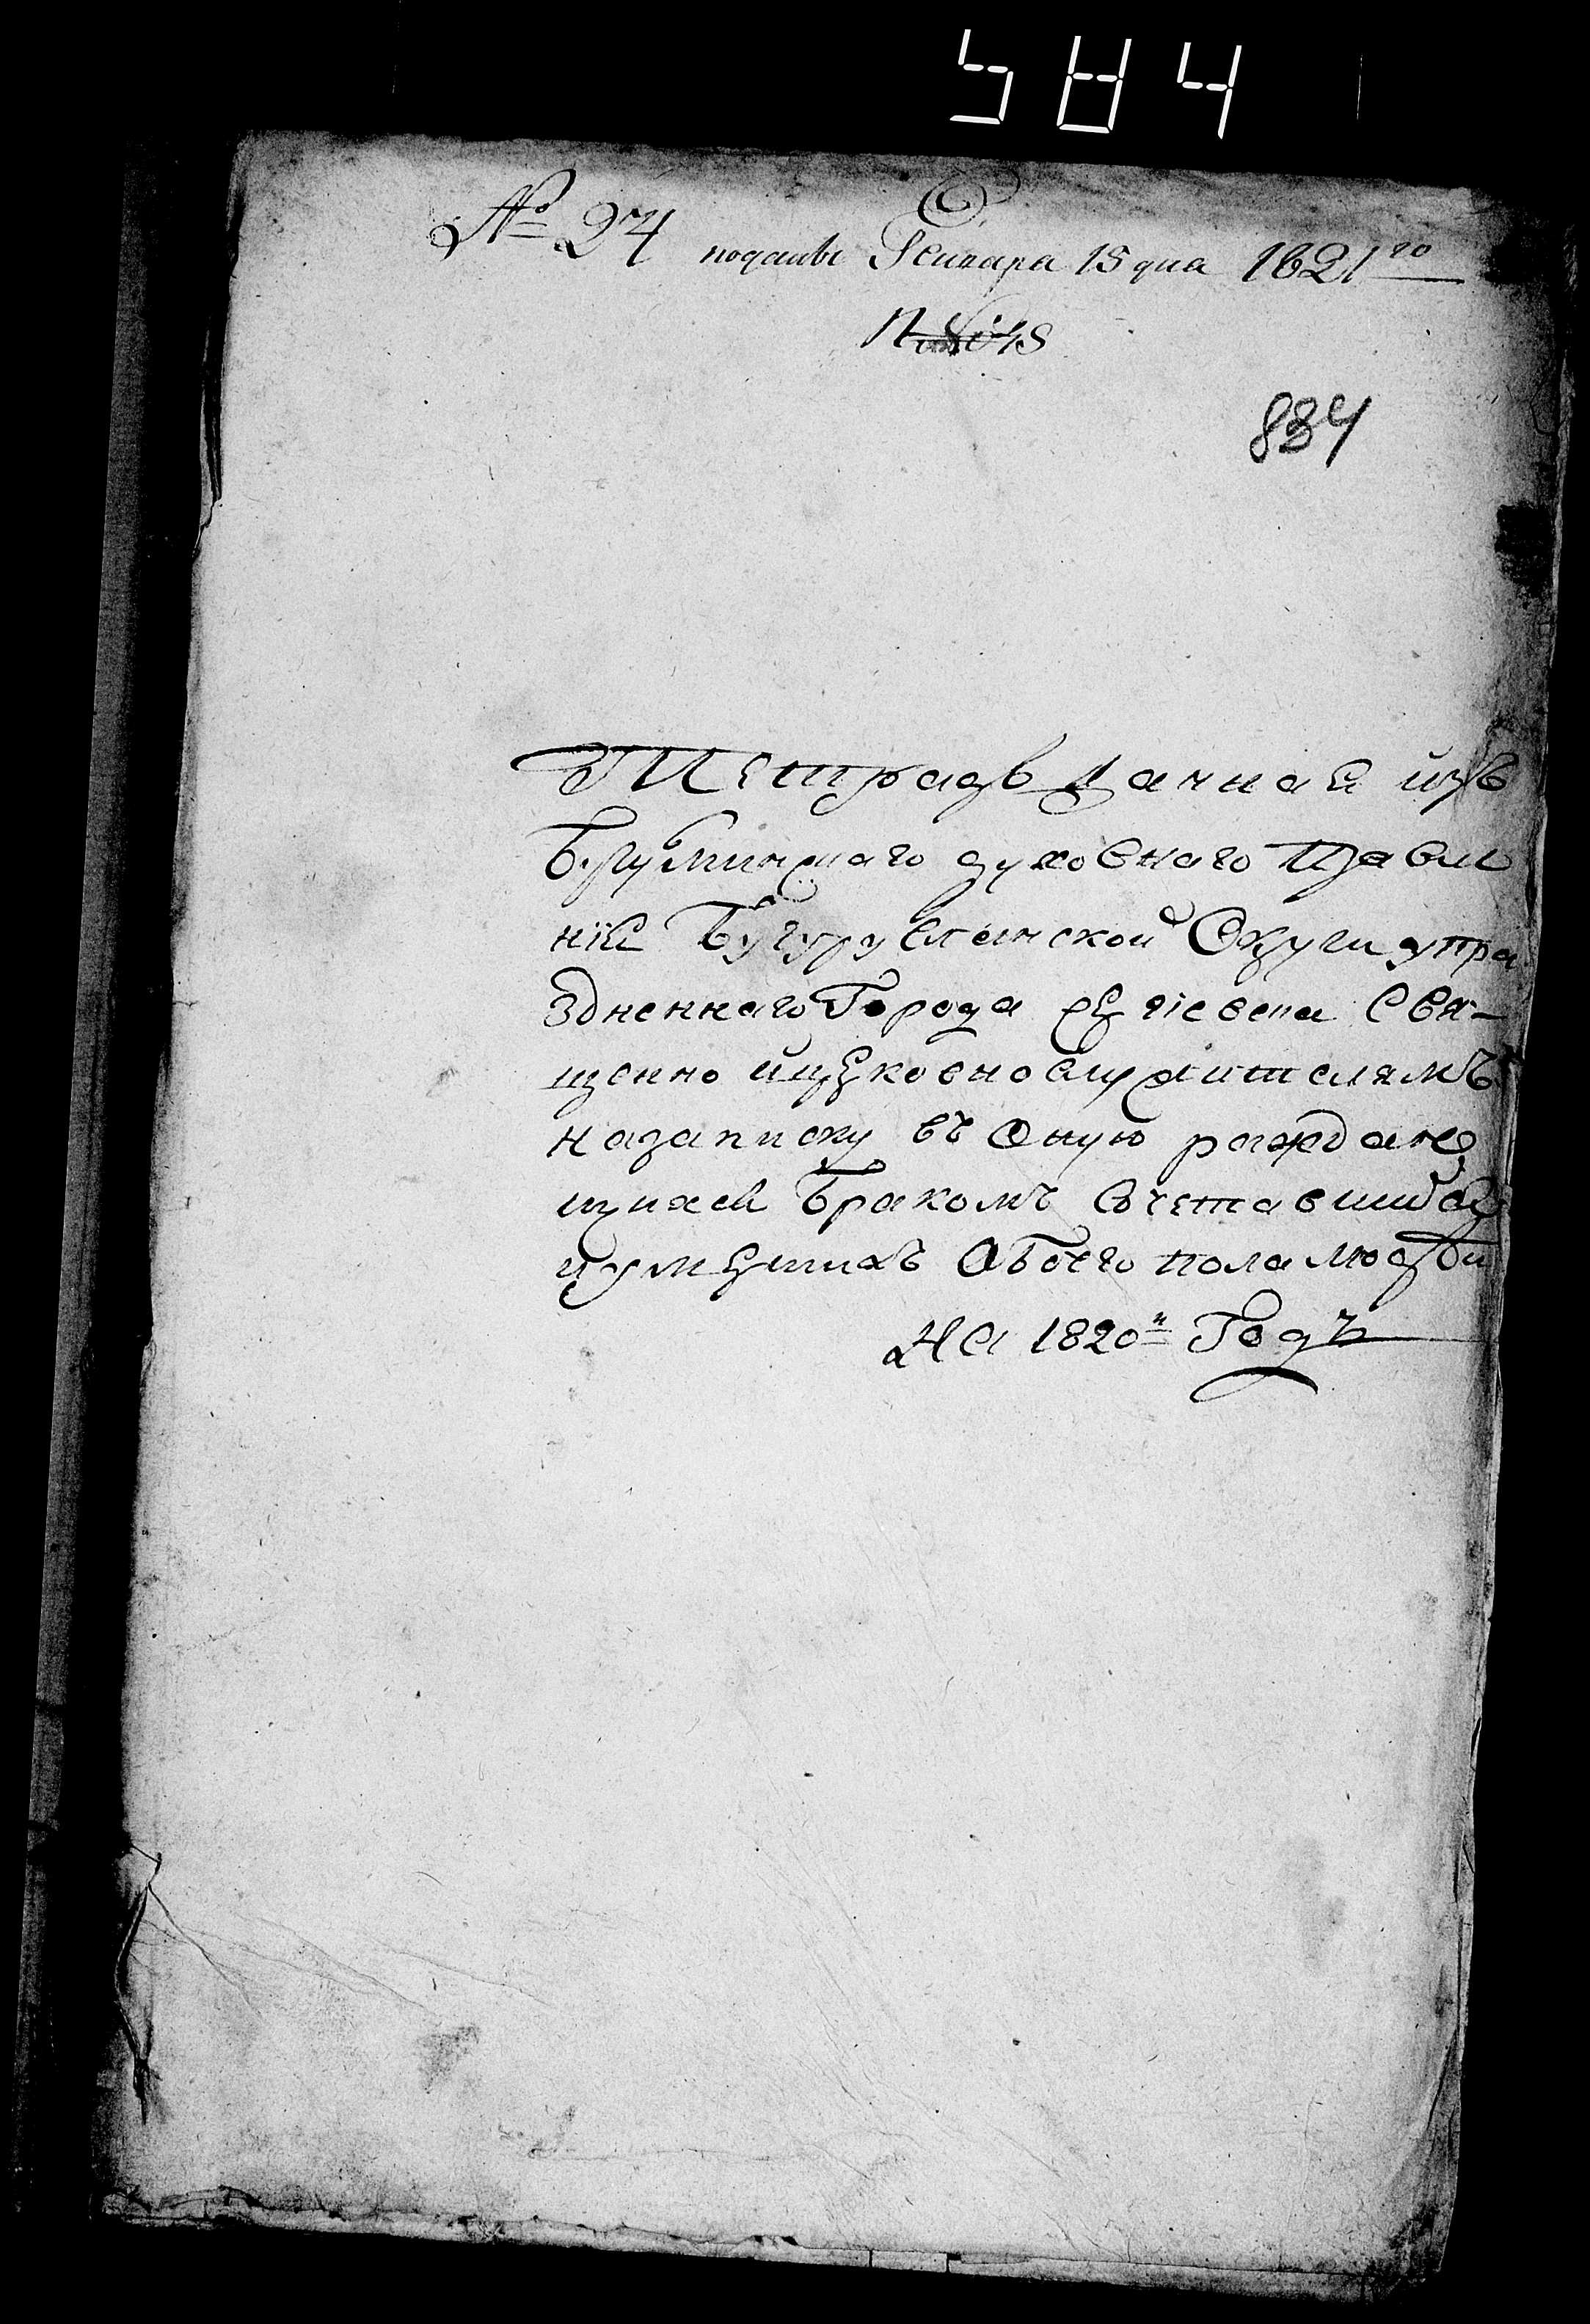 584
№ 27 поданы Генваря 15 дня 1821го
834
Тетрадь Дачная изъ
Бугулминскаго духовнаго Правле
нїя Бугурусланской Округи упра
здненнаго Города Сергіевска Свя-
щенно ицерковно служителямъ
назаписку въ Оную раждаю
щихся Бракомъ Сочетавшихся
иумершихъ Обоего пола людей
На 1820й Годъ